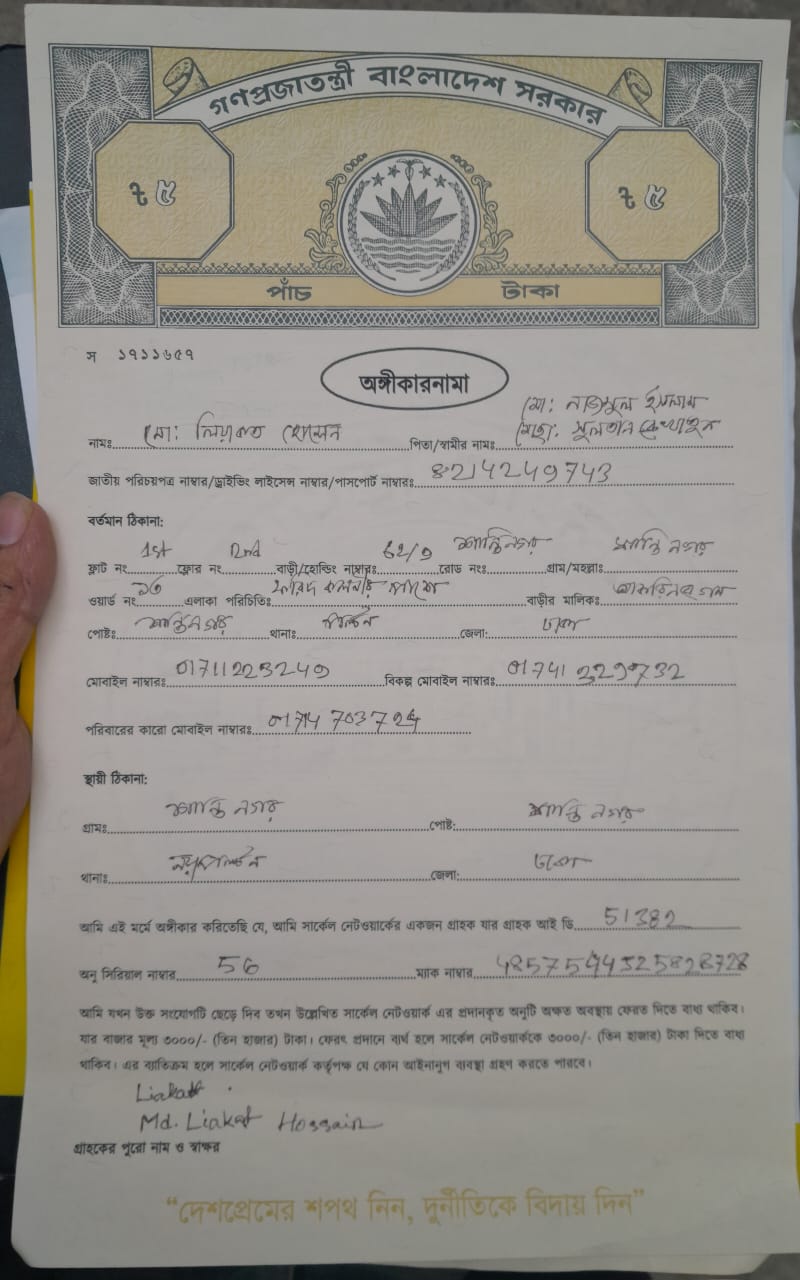 গণপ্রজাতন্ত্রী বাংলাদেশ সরকার
৳ ৫
৳ ৫
পাঁচ টাকা
স ১৭১১৬৫৭
অঙ্গীকারনামা
মো: নাজমুল ইসলাম
নামঃ মো: লিয়াকত হোসেন পিতা/স্বামীর নামঃ মোছা: সুলতান
জাতীয় পরিচয়পত্র নাম্বার/ড্রাইভিং লাইসেন্স নাম্বার/পাসপোর্ট নাম্বারঃ 8214249743
বর্তমান ঠিকানা:
ফ্লাট নং 1st ফ্লোর নং 2nd বাড়ী/হোল্ডিং নাম্বারঃ 62/9 রোড নংঃ শান্তিনগর গ্রাম/মহল্লাঃ শান্তি নগর
ওয়ার্ড নং ১৩ এলাকা পরিচিতিঃ পাশে বাড়ীর মালিকঃ
পোষ্টঃ শান্তিনগর থানাঃ পল্টন জেলা: ঢাকা
মোবাইল নাম্বারঃ 01711223249 বিকল্প মোবাইল নাম্বারঃ 01741 229732
পরিবারের কারো মোবাইল নাম্বারঃ
স্থায়ী ঠিকানা:
গ্রামঃ শান্তি নগর পোষ্ট: শান্তি নগর
থানাঃ নয়াপল্টন জেলা: ঢাকা
আমি এই মর্মে অঙ্গীকার করিতেছি যে, আমি সার্কেল নেটওয়ার্কের একজন গ্রাহক যার গ্রাহক আই ডি 51382
অনু সিরিয়াল নাম্বার 56 ম্যাক নাম্বার
আমি যখন উক্ত সংযোগটি ছেড়ে দিব তখন উল্লেখিত সার্কেল নেটওয়ার্ক এর প্রদানকৃত অনুটি অক্ষত অবস্থায় ফেরত দিতে বাধ্য থাকিব।
যার বাজার মূল্য ৩০০০/- (তিন হাজার) টাকা। ফেরৎ প্রদানে ব্যর্থ হলে সার্কেল নেটওয়ার্ককে ৩০০০/- (তিন হাজার) টাকা দিতে বাধ্য
থাকিব। এর ব্যতিক্রম হলে সার্কেল নেটওয়ার্ক কর্তৃপক্ষ যে কোন আইনানুগ ব্যবস্থা গ্রহণ করতে পারবে।
Liakat
Md. Liakat Hossain
গ্রাহকের পুরো নাম ও স্বাক্ষর
“দেশপ্রেমের শপথ নিন, দুর্নীতিকে বিদায় দিন”